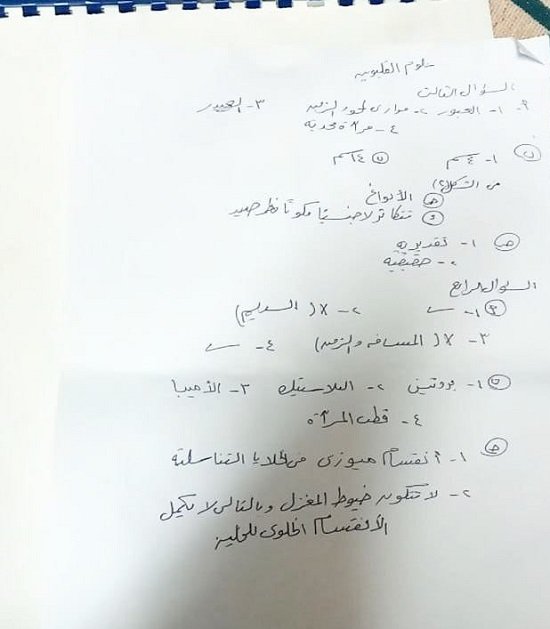 علوم القليوبية
السؤال الثالث
٩- ١- العبور ٢- موازى لمحور الزمن ٣- العبور
٤- مرآة محدبة
ب ١- ٤ سم ب ١٤ سم
من الشكل
ج الأبواغ
د تتكاثر لاجنسيًا مكونًا فطر جديد
ج ١- تقديرية
٢- حقيقية
السؤال الرابع
٩ ١- ✓ ٢- X (السديم)
٣- X (المسافه والزمن) ٤- ✓
ب ١- بروتين ٢- البلاستيك ٣- الأميبا
٤- قطب المرآة
ج ١- انقسام ميوزى فى الخلايا التناسلية
٢- لا تتكون خيوط المغزل وبالتالى لا يكتمل
الأنقسام الخلوى للخلية